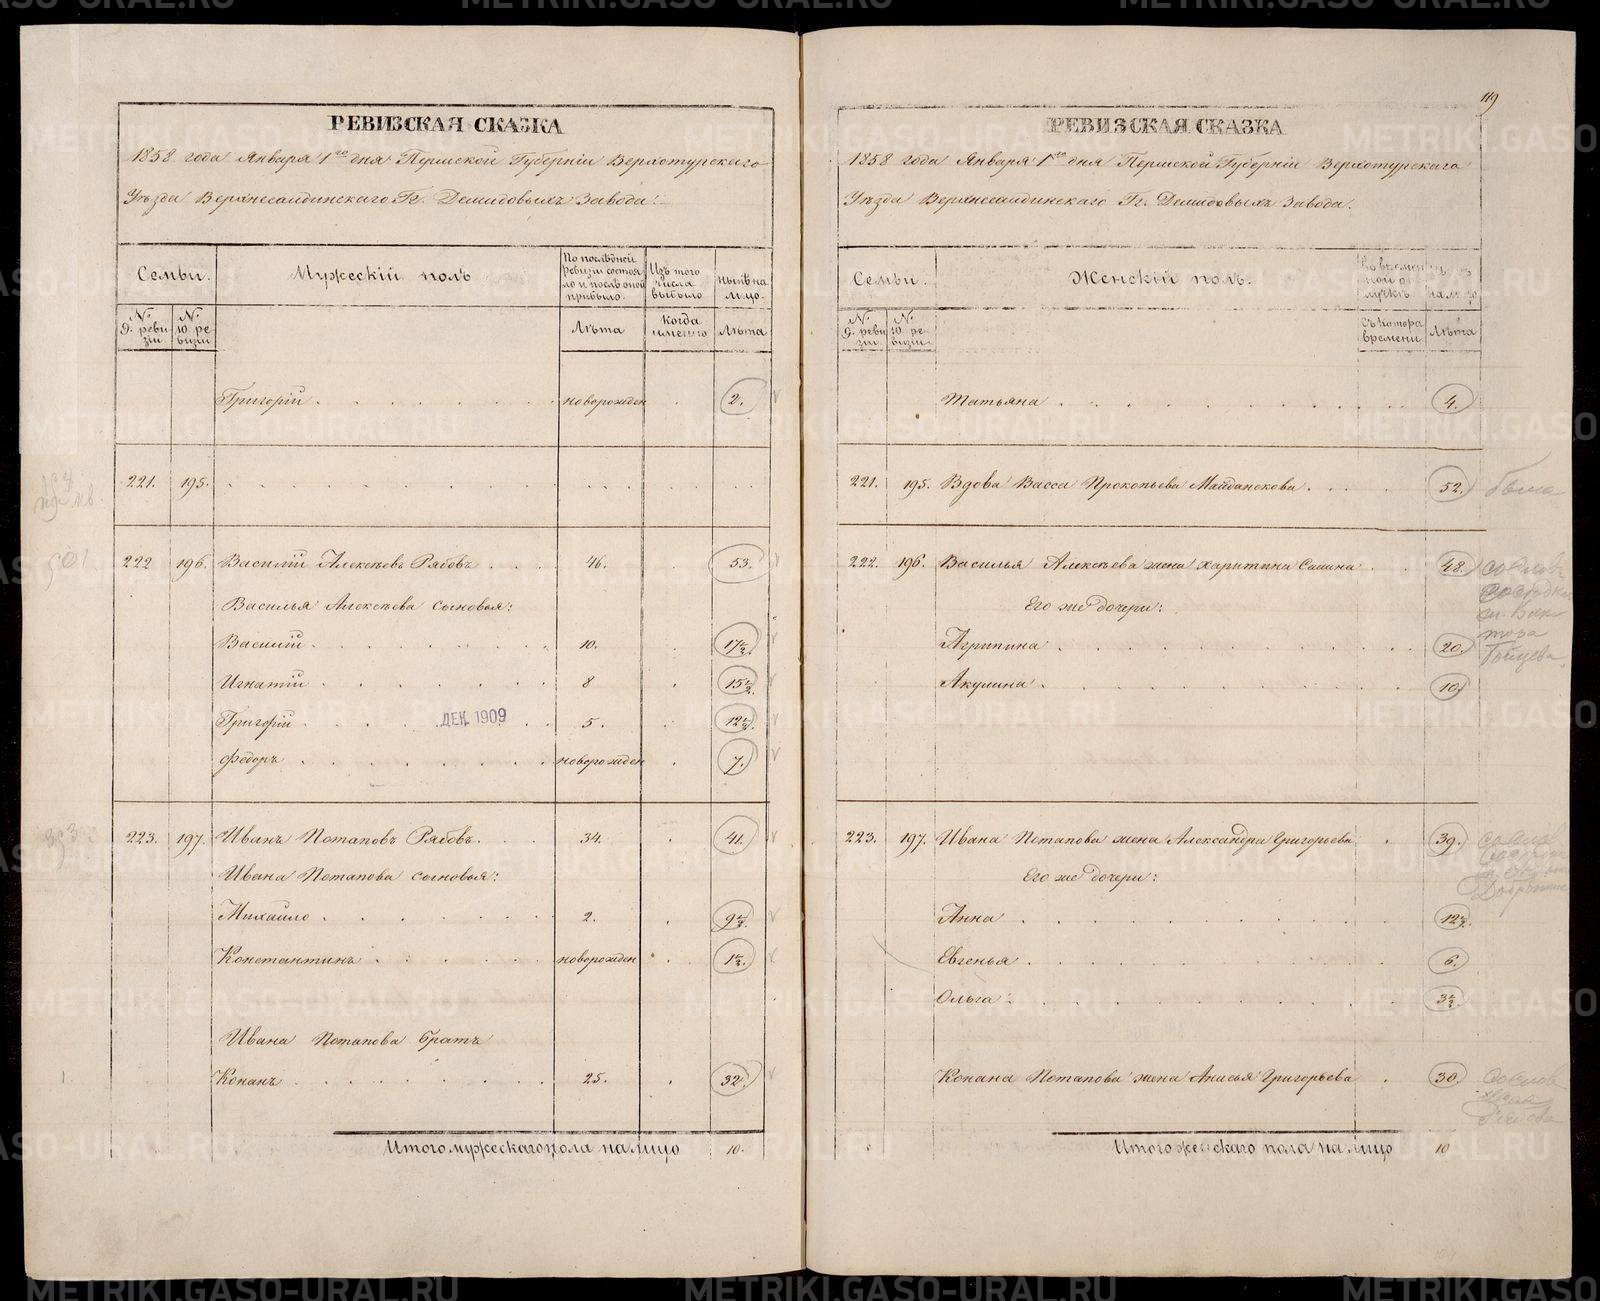 РЕВИЗСКАЯ СКАЗКА
1858 года Января 1го дня Пермской Губерніи Верхотурскаго
Уѣзда Верхнесалдинскаго Гг. Демидовыхъ Завода.
Семьи.
Мужескій полъ
По послѣдней ревизіи состояло и послѣ оной прибыло.
Изъ того числа выбыло
Нынѣ на лицо.
№ 9. ревизіи
№ 10 ревизіи
Лѣта
Когда именно
Лѣта
Григорій новорожден 2.
221. 195.
222 196. Василій Алексѣевъ Рябовъ 46. 53.
Василья Алексѣева сыновья:
Василій 10. 17½.
Игнатій 8 15½.
Григорій 5. 12½.
ДЕК. 1909
Федоръ новорожден 7.
223. 197. Иванъ Потаповъ Рябовъ. 34. 41.
Ивана Потапова сыновья:
Михайло 2. 9½.
Константинъ новорожден 1½.
Ивана Потапова братъ
Конанъ 25. 32.
Итого мужескаго пола на лицо 10.
119
РЕВИЗСКАЯ СКАЗКА
1858 года Января 1го дня Пермской Губерніи Верхотурскаго
Уѣзда Верхнесалдинскаго Гг. Демидовыхъ Завода.
Семьи.
Женскій полъ.
Во временной отлучкѣ
на лицо
№ 9. ревизіи
№ 10. ревизіи.
Съ котора времени
Лѣта
Татьяна 4.
221. 195. Вдова Васса Прокопьева Майданокова 52.
222. 196. Василья Алексѣева жена Харитина Савина 48.
Его же дочери:
Агрипина 20.
Акулина 10.
223. 197. Ивана Потапова жена Александра Григорьева 39.
Его же дочери:
Анна 12½.
Евгенья 6.
Ольга 3½.
Конана Потапова жена Анисья Григорьева 30.
Итого женскаго пола на лицо 10
METRIKI.GASO-URAL.RU